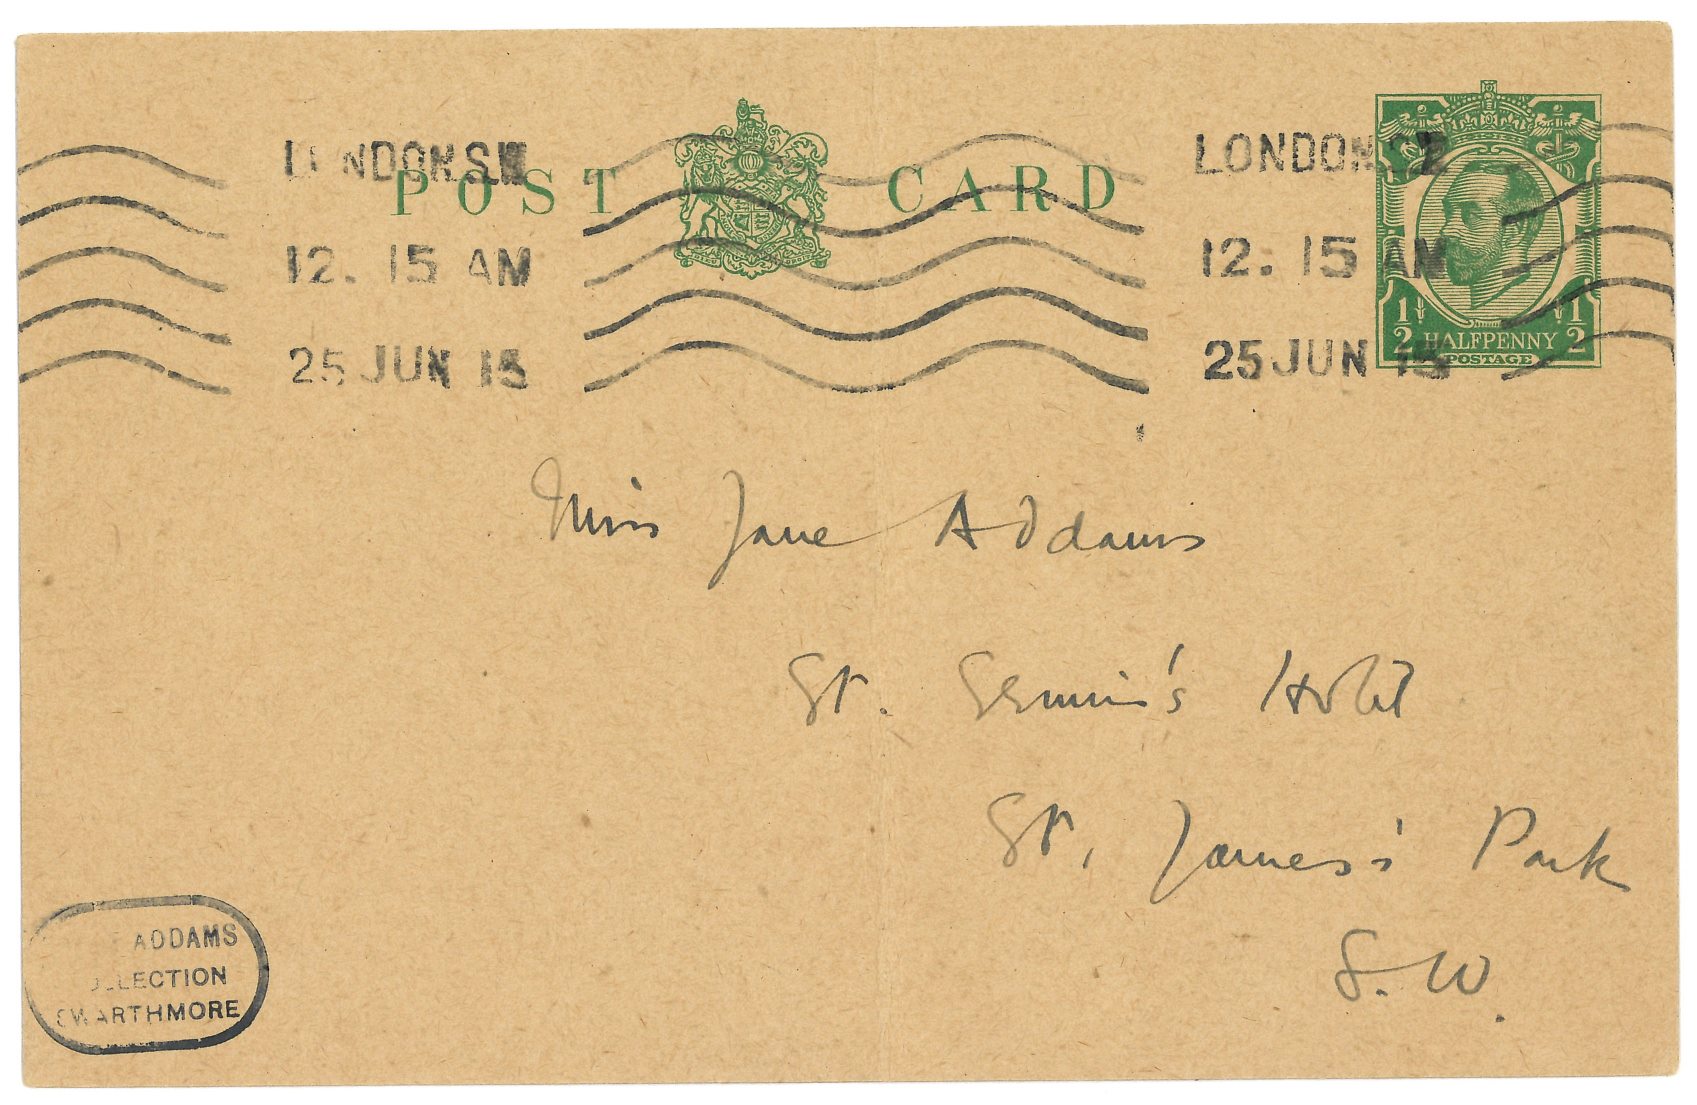 LONDON.S.W
12. 15 AM
25 JUN 15
POST CARD
LONDON.S.W
12. 15 AM
25 JUN 15
1/2 HALFPENNY 1/2
POSTAGE
Miss Jane Addams
St. Ermin's Hotel
St. James's Park
S.W.
ADDAMS
COLLECTION
SWARTHMORE